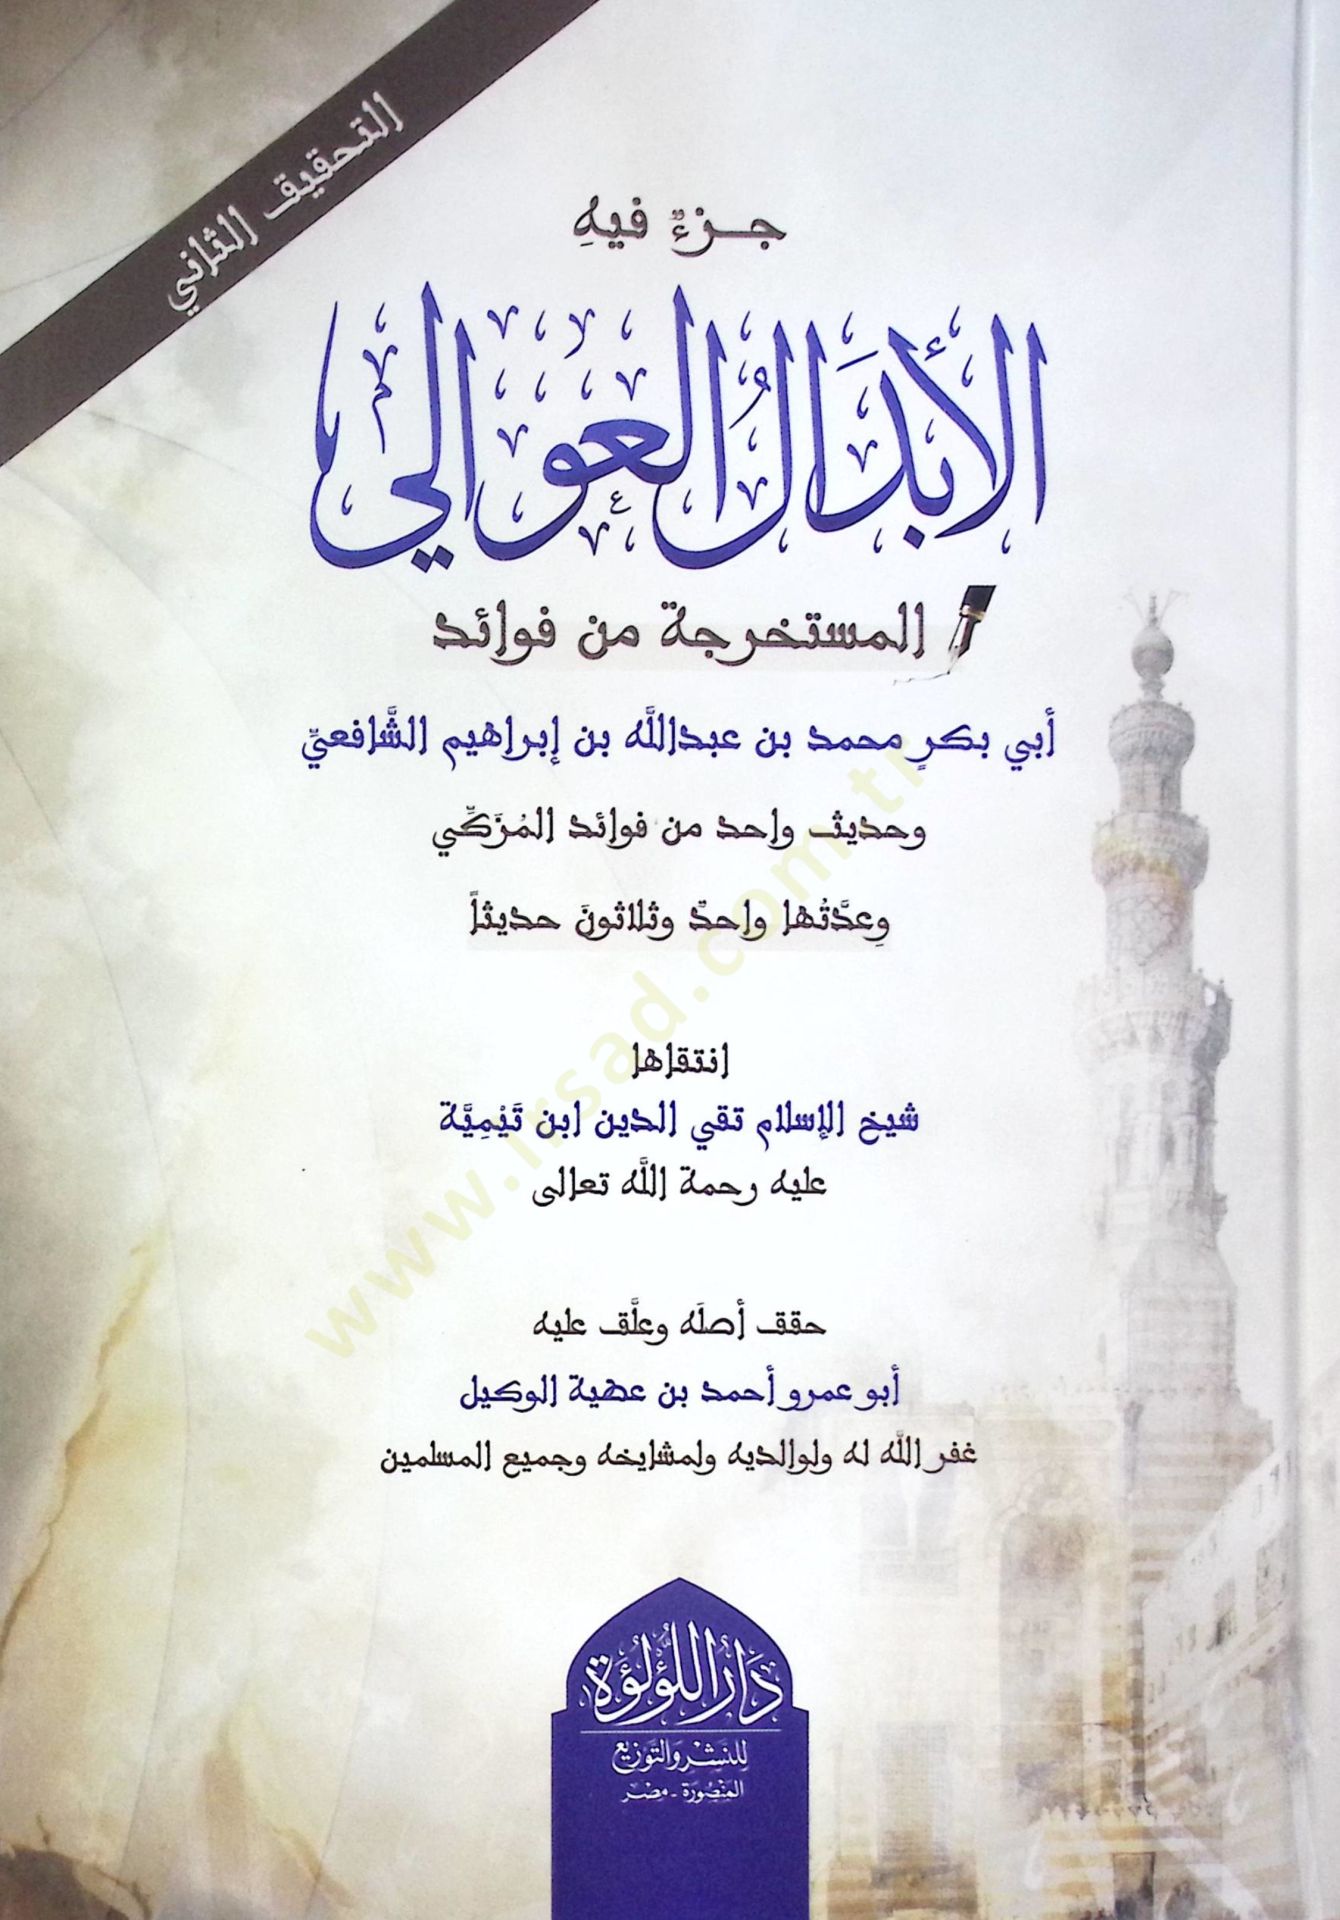 التحقيق الثاني
جزءٌ فيهِ
الأبدَالُ العوالي
المستخرجة من فوائد
أبي بكرٍ محمد بن عبدالله بن إبراهيم الشَّافعيِّ
وحديث واحد من فوائد المُزَكِّي
وعِدَّتُها واحدٌ وثلاثونَ حديثاً
انتقاها
شيخ الإسلام تقي الدين ابن تَيْمِيَّة
عليه رحمة الله تعالى
حقق أصلَه وعلَّق عليه
أبو عمرو أحمد بن عطية الوكيل
غفر الله له ولوالديه ولمشايخه وجميع المسلمين
دَارُ اللُّؤْلُؤَة
لِلنَّشْرِ وَالتَّوْزِيع
المَنصُورَة - مِصْر
www.irsad.com.tr